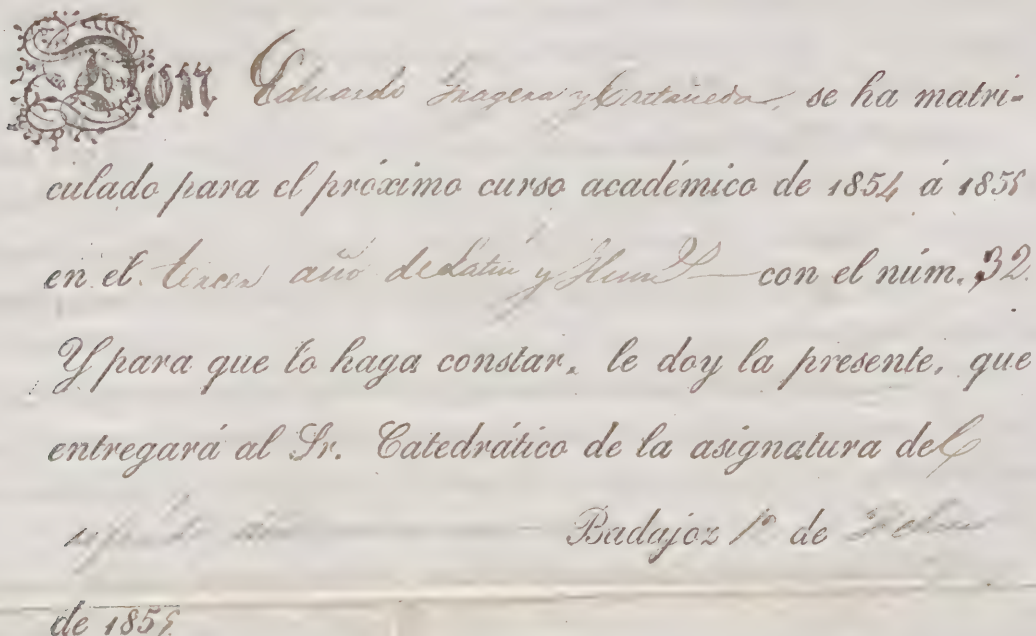 Don Eduardo Gragera y Castañeda, se ha matri-
culado para el próximo curso académico de 1854 á 1855
en el tercer año de Latin y Hum.s con el núm. 32.
Y para que lo haga constar, le doy la presente, que
entregará al Sr. Catedrático de la asignatura de
Badajoz 1º de
de 1855